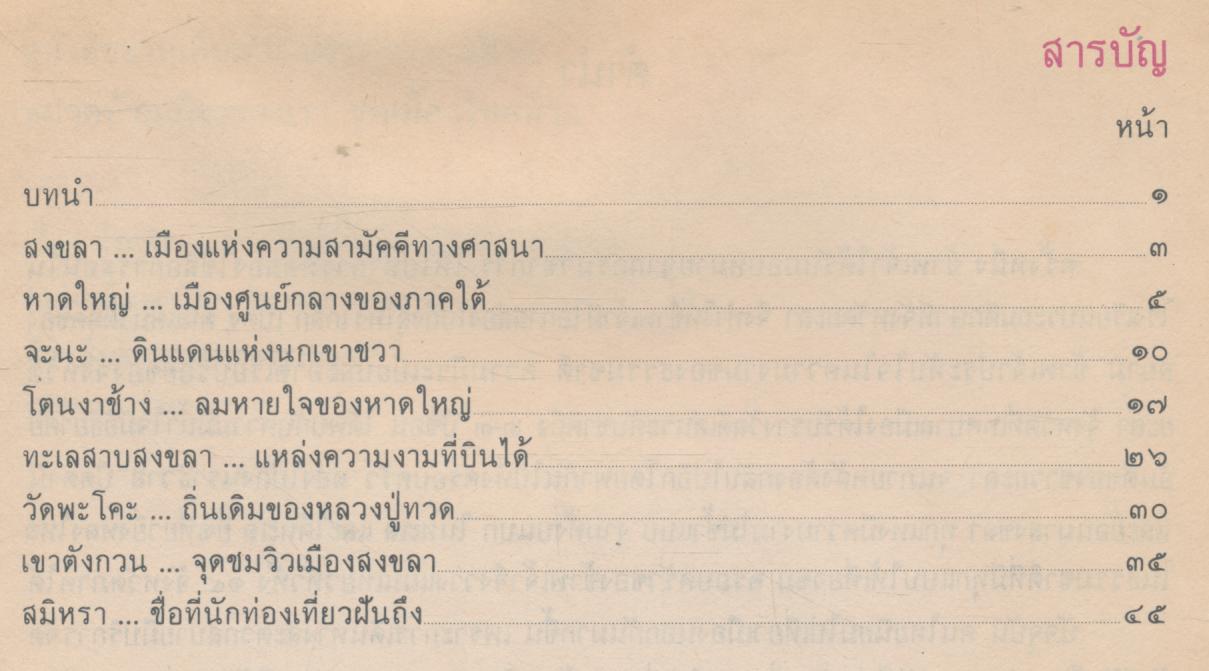 สารบัญ
หน้า
บทนำ ๑
สงขลา ... เมืองแห่งความสามัคคีทางศาสนา ๓
หาดใหญ่ ... เมืองศูนย์กลางของภาคใต้ ๕
จะนะ ... ดินแดนแห่งนกเขาชวา ๑๐
โตนงาช้าง ... ลมหายใจของหาดใหญ่ ๑๗
ทะเลสาบสงขลา ... แหล่งความงามที่บินได้ ๒๖
วัดพะโคะ ... ถิ่นเดิมของหลวงปู่ทวด ๓๐
เขาตังกวน ... จุดชมวิวเมืองสงขลา ๓๕
สมิหรา ... ชื่อที่นักท่องเที่ยวฝันถึง ๔๕